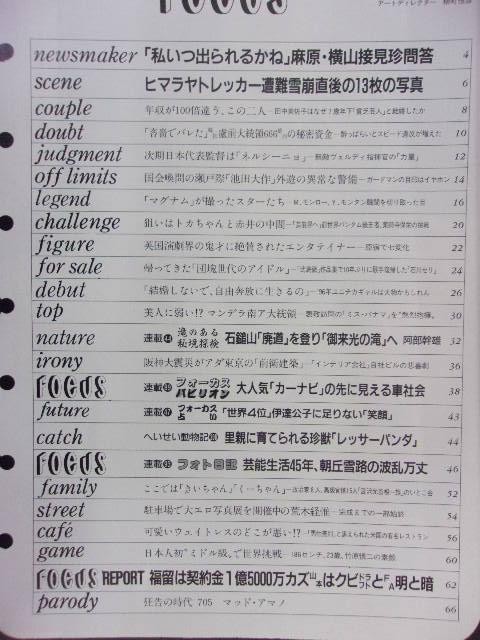 FOCUS
アートディレクター
newsmaker 「私いつ出られるかね」麻原・横山接見珍問答 4
scene ヒマラヤトレッカー遭難雪崩直後の13枚の写真 6
couple 年収が100倍違う、この二人 8
doubt 「杏音でバレた」盧前大統領666の秘密資金 10
judgment 次期日本代表監督は「ネルシーニョ」―無敵ヴェルディ指揮官の「力量」 12
off limits 国会喚問の瀬戸際「池田大作」外遊の異常な警備―ガードマンの目印はイヤホン 14
legend 「マグナム」が撮ったスターたち―M.モンロー、Y.モンタン 16
challenge 狙いはトカちゃんと赤井の中間 20
figure 英国演劇界の鬼才に絶賛されたエンタテイナー―原宿で七変化 22
for sale 帰ってきた「団塊世代のアイドル」 24
debut 「結婚しないで、自由奔放に生きるの」―'96年ユニチカギャルは大物かもしれん 26
top 美人に弱い!? マンデラ南ア大統領―表敬訪問の「ミス・パナマ」を 30
nature 連載 滝のある秘境探検 石鎚山「廃道」を登り「御来光の滝」へ 阿部幹雄 32
irony 阪神大震災がアダ東京の「前衛建築」―「インテリア会社」自社ビルの悲喜劇 36
FOCUS 連載 フォーカスパビリオン 大人気「カーナビ」の先に見える車社会 38
future 連載 フォーカス占い 「世界4位」伊達公子に足りない「笑顔」 43
catch へいせい動物記 里親に育てられる珍獣「レッサーパンダ」 44
FOCUS 連載 フォト日記 芸能生活45年、朝丘雪路の波乱万丈 46
family ここでは「きいちゃん」「くーちゃん」 52
street 駐車場で大エロ写真展を開催中の荒木経惟―完成までの一部始終 54
café 可愛いウェイトレスのどこが悪い!? 56
game 日本人初“ミドル級”で世界挑戦―186センチ、23歳、竹原慎二の素顔 60
FOCUS REPORT 福留は契約金1億5000万カズ山本はクビドラフトとFA明と暗 62
parody 狂告の時代 705 マッド・アマノ 66